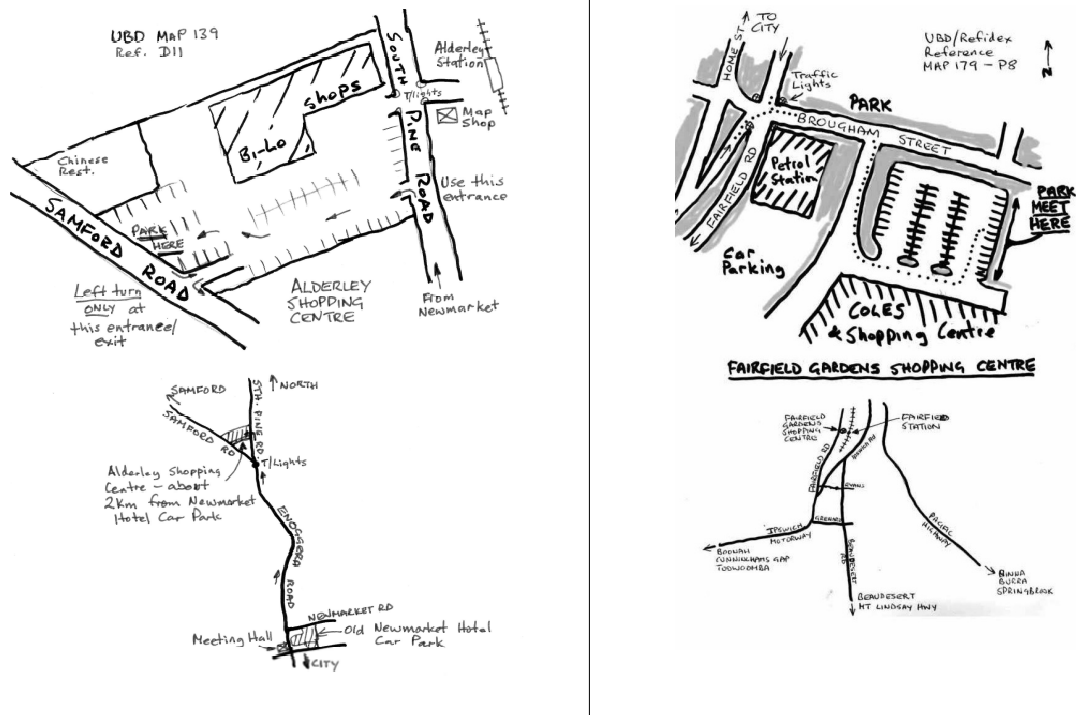 UBD MAP 139
Ref. D11
SOUTH PINE ROAD
Alderley
Station
T/lights
Map
Shop
Shops
Bi-Lo
Chinese
Rest.
Use this
entrance
PARK
HERE
SAMFORD ROAD
Left turn
ONLY at
this entrance/
exit
ALDERLEY
SHOPPING
CENTRE
From
Newmarket
SAMFORD
NORTH
STH. PINE RD.
SAMFORD RD
T/Lights
Alderley Shopping
Centre - about
2Km from Newmarket
Hotel Car Park
ENOGGERA
ROAD
NEWMARKET RD
Meeting Hall
Old Newmarket Hotel
Car Park
CITY
TO
CITY
HOME ST
UBD/Refidex
Reference
MAP 179 - P8
N
Traffic
Lights
PARK
BROUGHAM STREET
Petrol
Station
FAIRFIELD RD
PARK
MEET
HERE
Car
Parking
COLES
& Shopping Centre
FAIRFIELD GARDENS SHOPPING CENTRE
FAIRFIELD
GARDENS
SHOPPING
CENTRE
FAIRFIELD
STATION
IPSWICH RD
FAIRFIELD RD
EVANS
GRENARD
IPSWICH
MOTORWAY
BEAUDESERT
RD
PACIFIC
HIGHWAY
BOONAH
CUNNINGHAMS GAP
TOOWOOMBA
BINNA
BURRA
SPRINGBROOK
BEAUDESERT
MT LINDSAY HWY